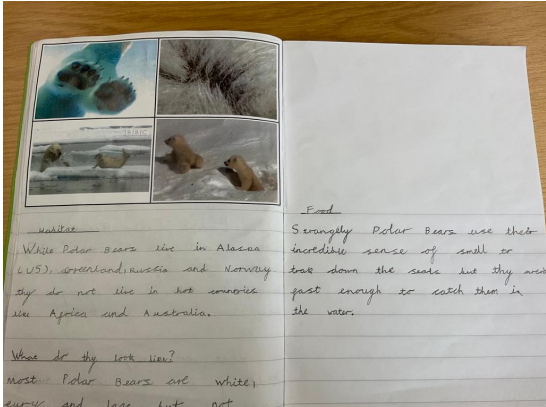 Habitat
While Polar Bears live in Alasca
(US), Greenland, Russia and Norway
thy do not live in hot countries
like Africa and Australia.
What do thy look like?
Most Polar Bears are white,
and but not
Food
Strangely Polar Bears use their
incredible sense of smell to
track down the seals but thy
fast enough to catch them in
the water.